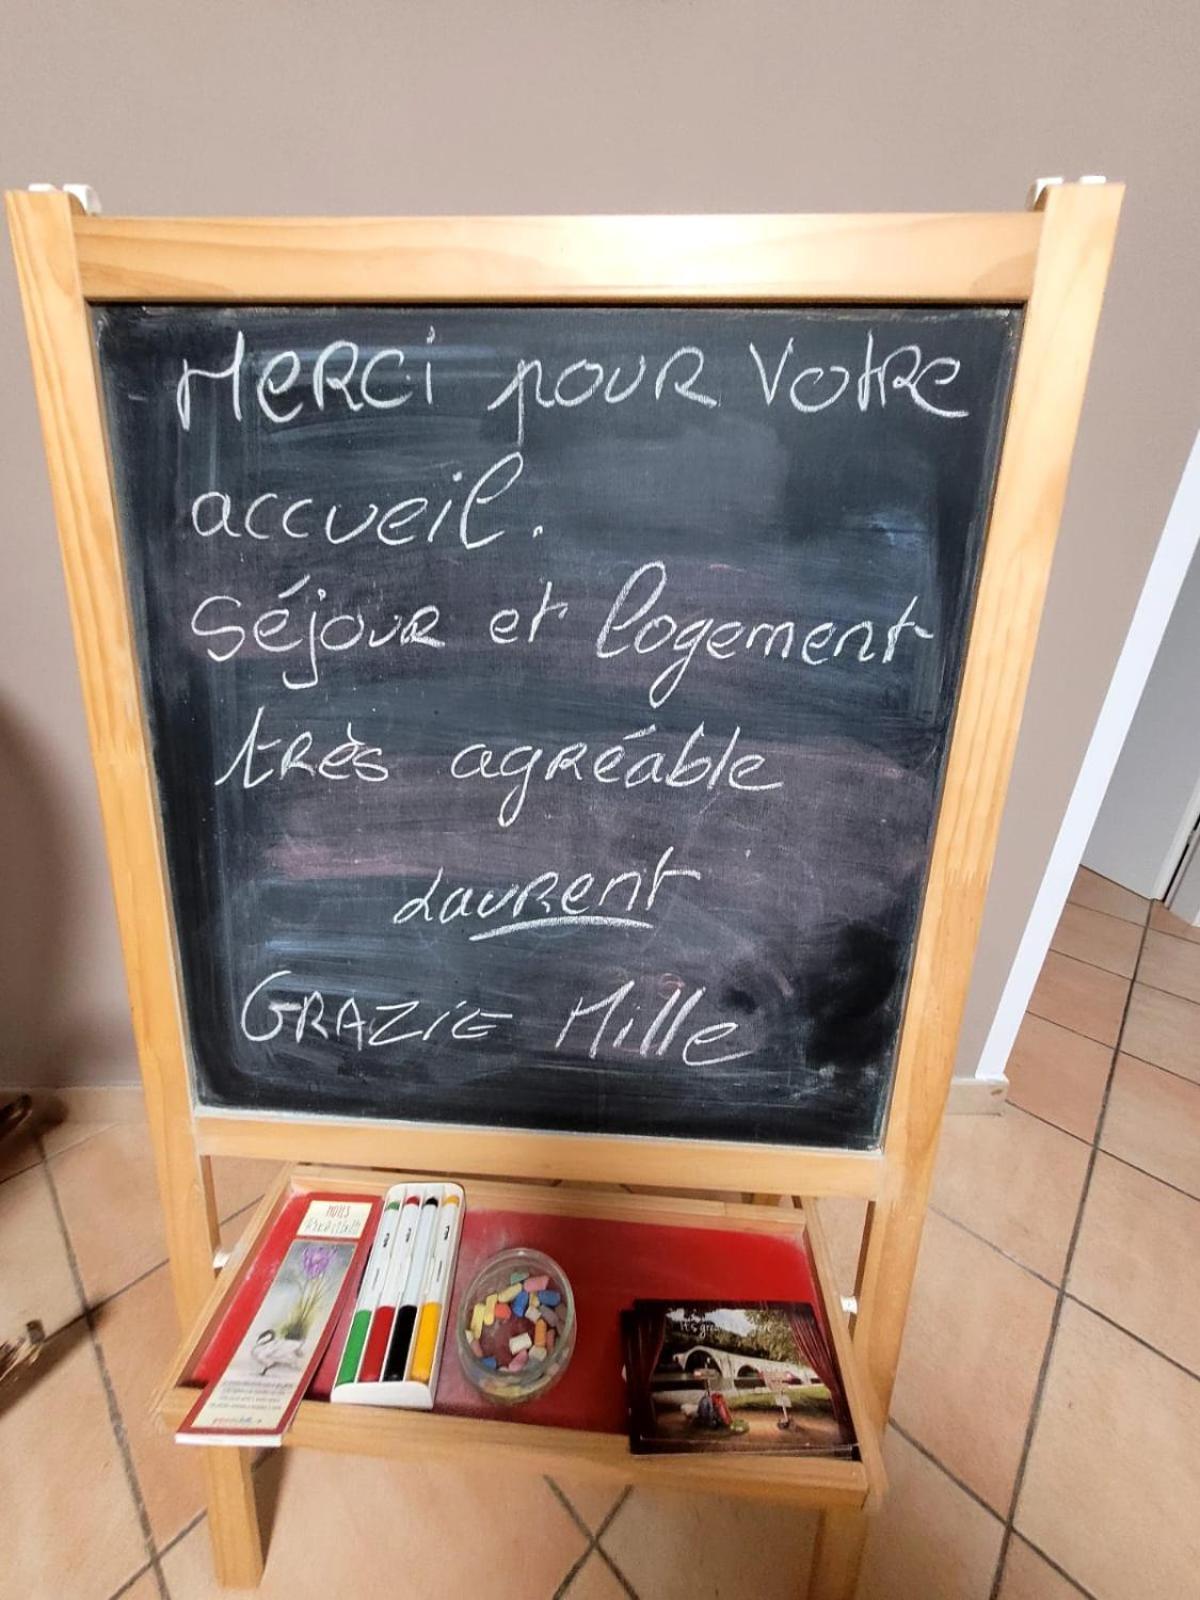 Merci pour Votre
accueil.
Séjour et logement
très agréable
Laurent
GRAZIE Mille
NOTES
It's